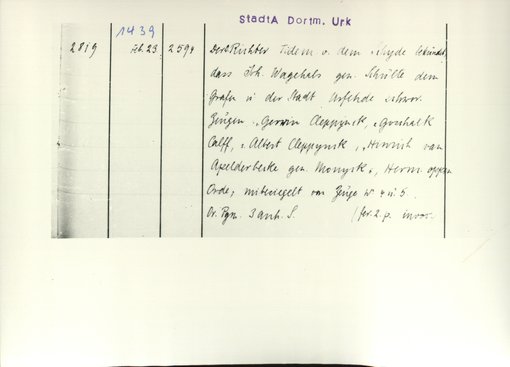 StadtA Dortm. Urk
1439
2819 Feb. 23 2594 Der Richter Tidem v. dem bekundet,
dass Joh. Wagehals gen. Schulle dem
Grafen u der Stadt Urfehde schwor.
Zeugen: Gerwin Cleppynck,
Calff, Albert Cleppynck, Hinrich van
Apelderbecke gen. Herm. oppen
Orde, mitbesiegelt von Zeuge No 4 u 5.
Or. Pgm. 3 anh. S. (fer. 2. p.